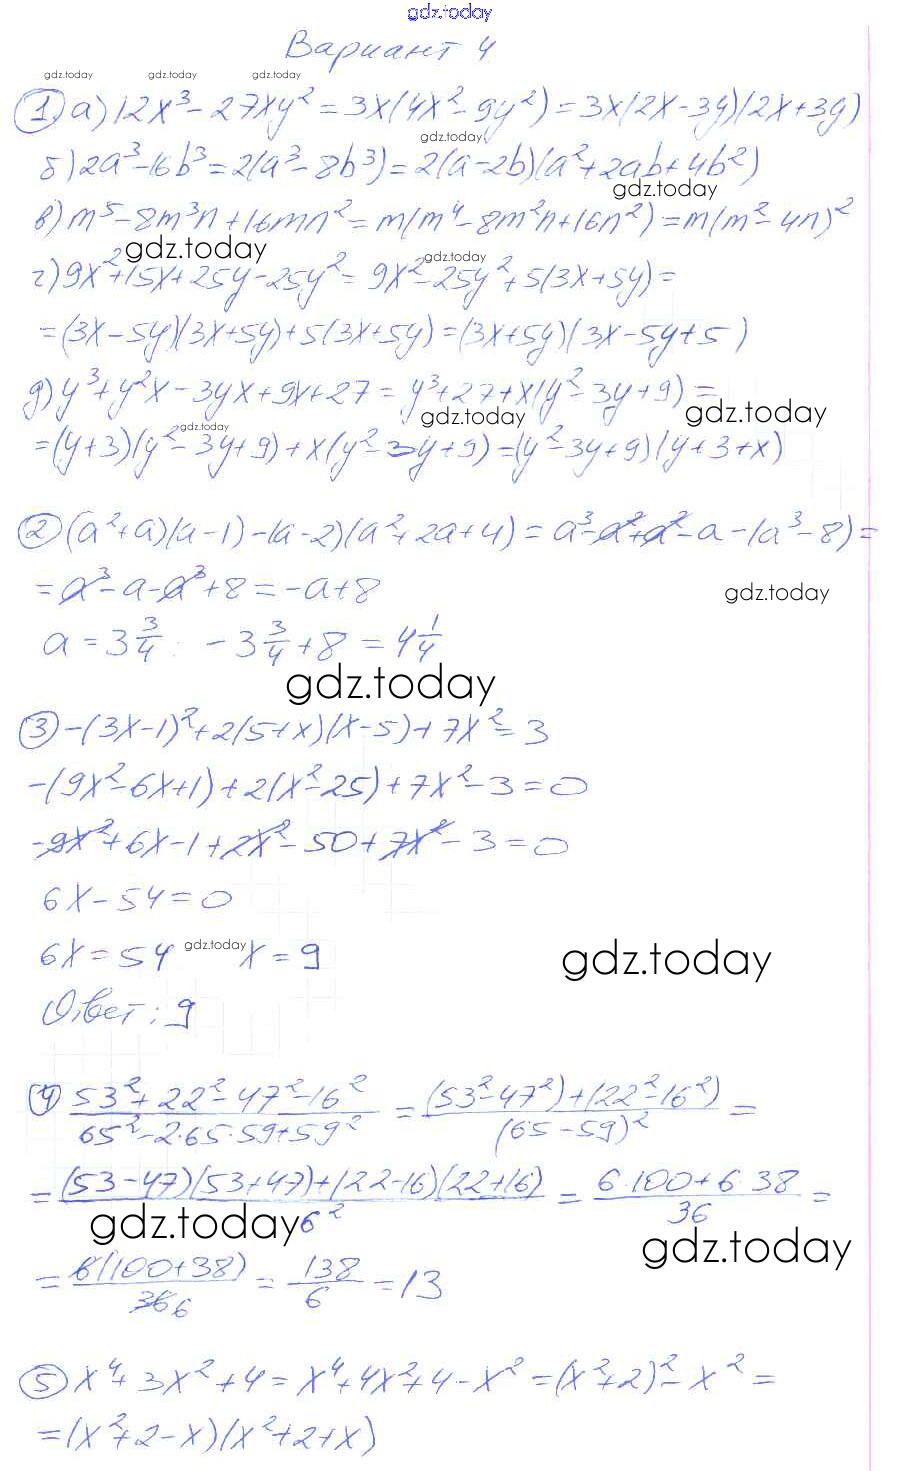 gdz.today
Вариант 4
gdz.today gdz.today gdz.today
1) а) 12x³ - 27xy² = 3x(4x² - 9y²) = 3x(2x - 3y)(2x + 3y)
gdz.today
б) 2a³ - 16b³ = 2(a³ - 8b³) = 2(a - 2b)(a² + 2ab + 4b²)
gdz.today
в) m⁵ - 8m³n + 16mn² = m(m⁴ - 8m²n + 16n²) = m(m² - 4n)²
gdz.today gdz.today
г) 9x² + 15x + 25y - 25y² = 9x² - 25y² + 5(3x + 5y) =
= (3x - 5y)(3x + 5y) + 5(3x + 5y) = (3x + 5y)(3x - 5y + 5)
д) y³ + y²x - 3yx + 9x + 27 = y³ + 27 + x(y² - 3y + 9) =
gdz.today gdz.today
gdz.today
= (y + 3)(y² - 3y + 9) + x(y² - 3y + 9) = (y² - 3y + 9)(y + 3 + x)
2) (a² + a)(a - 1) - (a - 2)(a² + 2a + 4) = a³ - a² + a² - a - (a³ - 8) =
= a³ - a - a³ + 8 = -a + 8
gdz.today
a = 3 3/4 : - 3 3/4 + 8 = 4 1/4
gdz.today
3) -(3x - 1)² + 2(5 + x)(x - 5) + 7x² = 3
-(9x² - 6x + 1) + 2(x² - 25) + 7x² - 3 = 0
-9x² + 6x - 1 + 2x² - 50 + 7x² - 3 = 0
6x - 54 = 0
6x = 54 gdz.today x = 9
gdz.today
Ответ: 9
4) (53² + 22² - 47² - 16²)/(65² - 2·65·59 + 59²) = ((53² - 47²) + (22² - 16²))/(65 - 59)² =
= ((53 - 47)(53 + 47) + (22 - 16)(22 + 16))/6² = (6·100 + 6·38)/36 =
gdz.today
gdz.today
= 6(100 + 38)/36 6 = 138/6 = 13
5) x⁴ + 3x² + 4 = x⁴ + 4x² + 4 - x² = (x² + 2)² - x² =
= (x² + 2 - x)(x² + 2 + x)